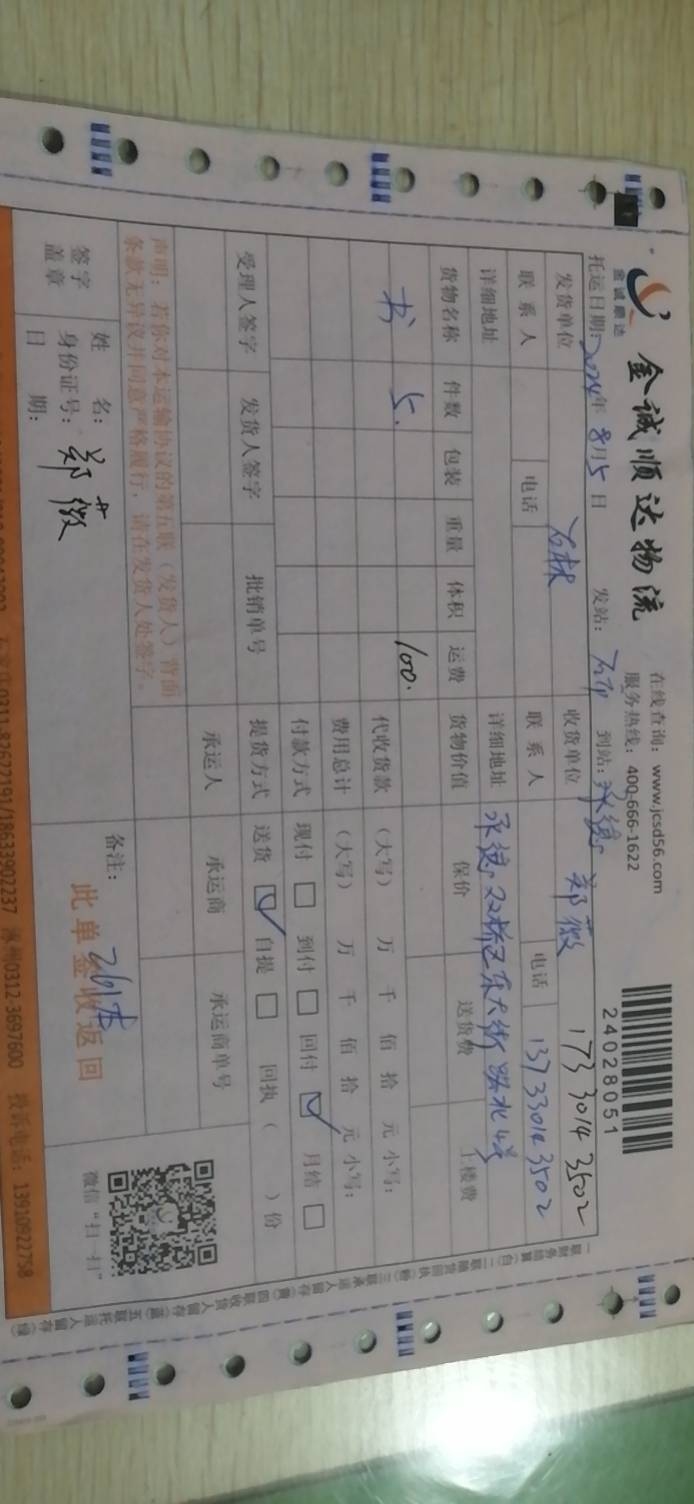 金诚顺达
金诚顺达物流
在线查询：www.jcsd56.com
服务热线：400-666-1622
24028051
托运日期：2024年 8月5日 发站： 到站：承德
发货单位 收货单位 郑薇 173 3014 3502
联系人 电话 联系人 电话 137 3301 3502
详细地址 详细地址 承德 双桥区东大街 路北4号
货物名称 件数 包装 重量 体积 运费 货物价值 保价 送货费 上楼费
书 5. 100.
代收货款 （大写） 万 仟 佰 拾 元 小写：
费用总计 （大写） 万 仟 佰 拾 元 小写：
付款方式 现付 □ 到付 □ 回付 ☑ 月结 □
受理人签字 发货人签字 批销单号 提货方式 送货 ☑ 自提 □ 回执（ ）份
承运人 承运商 承运商单号
声明：若你对本运输协议的第五联（发货人）背面
条款无异议并同意严格履行，请在发货人处签字。
签字
盖章
姓 名：郑薇
身份证号：
日 期：
备注：
此单签收返回
微信“扫一扫”
一联财务结算（白）二联随货回执（粉）三联承运人留存（黄）四联收货人留存（蓝）五联托运人留存（绿）
0311-82622191/18633902237 涿州0312-3697600 投诉电话：13910922758